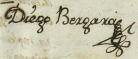 Diego Bergara